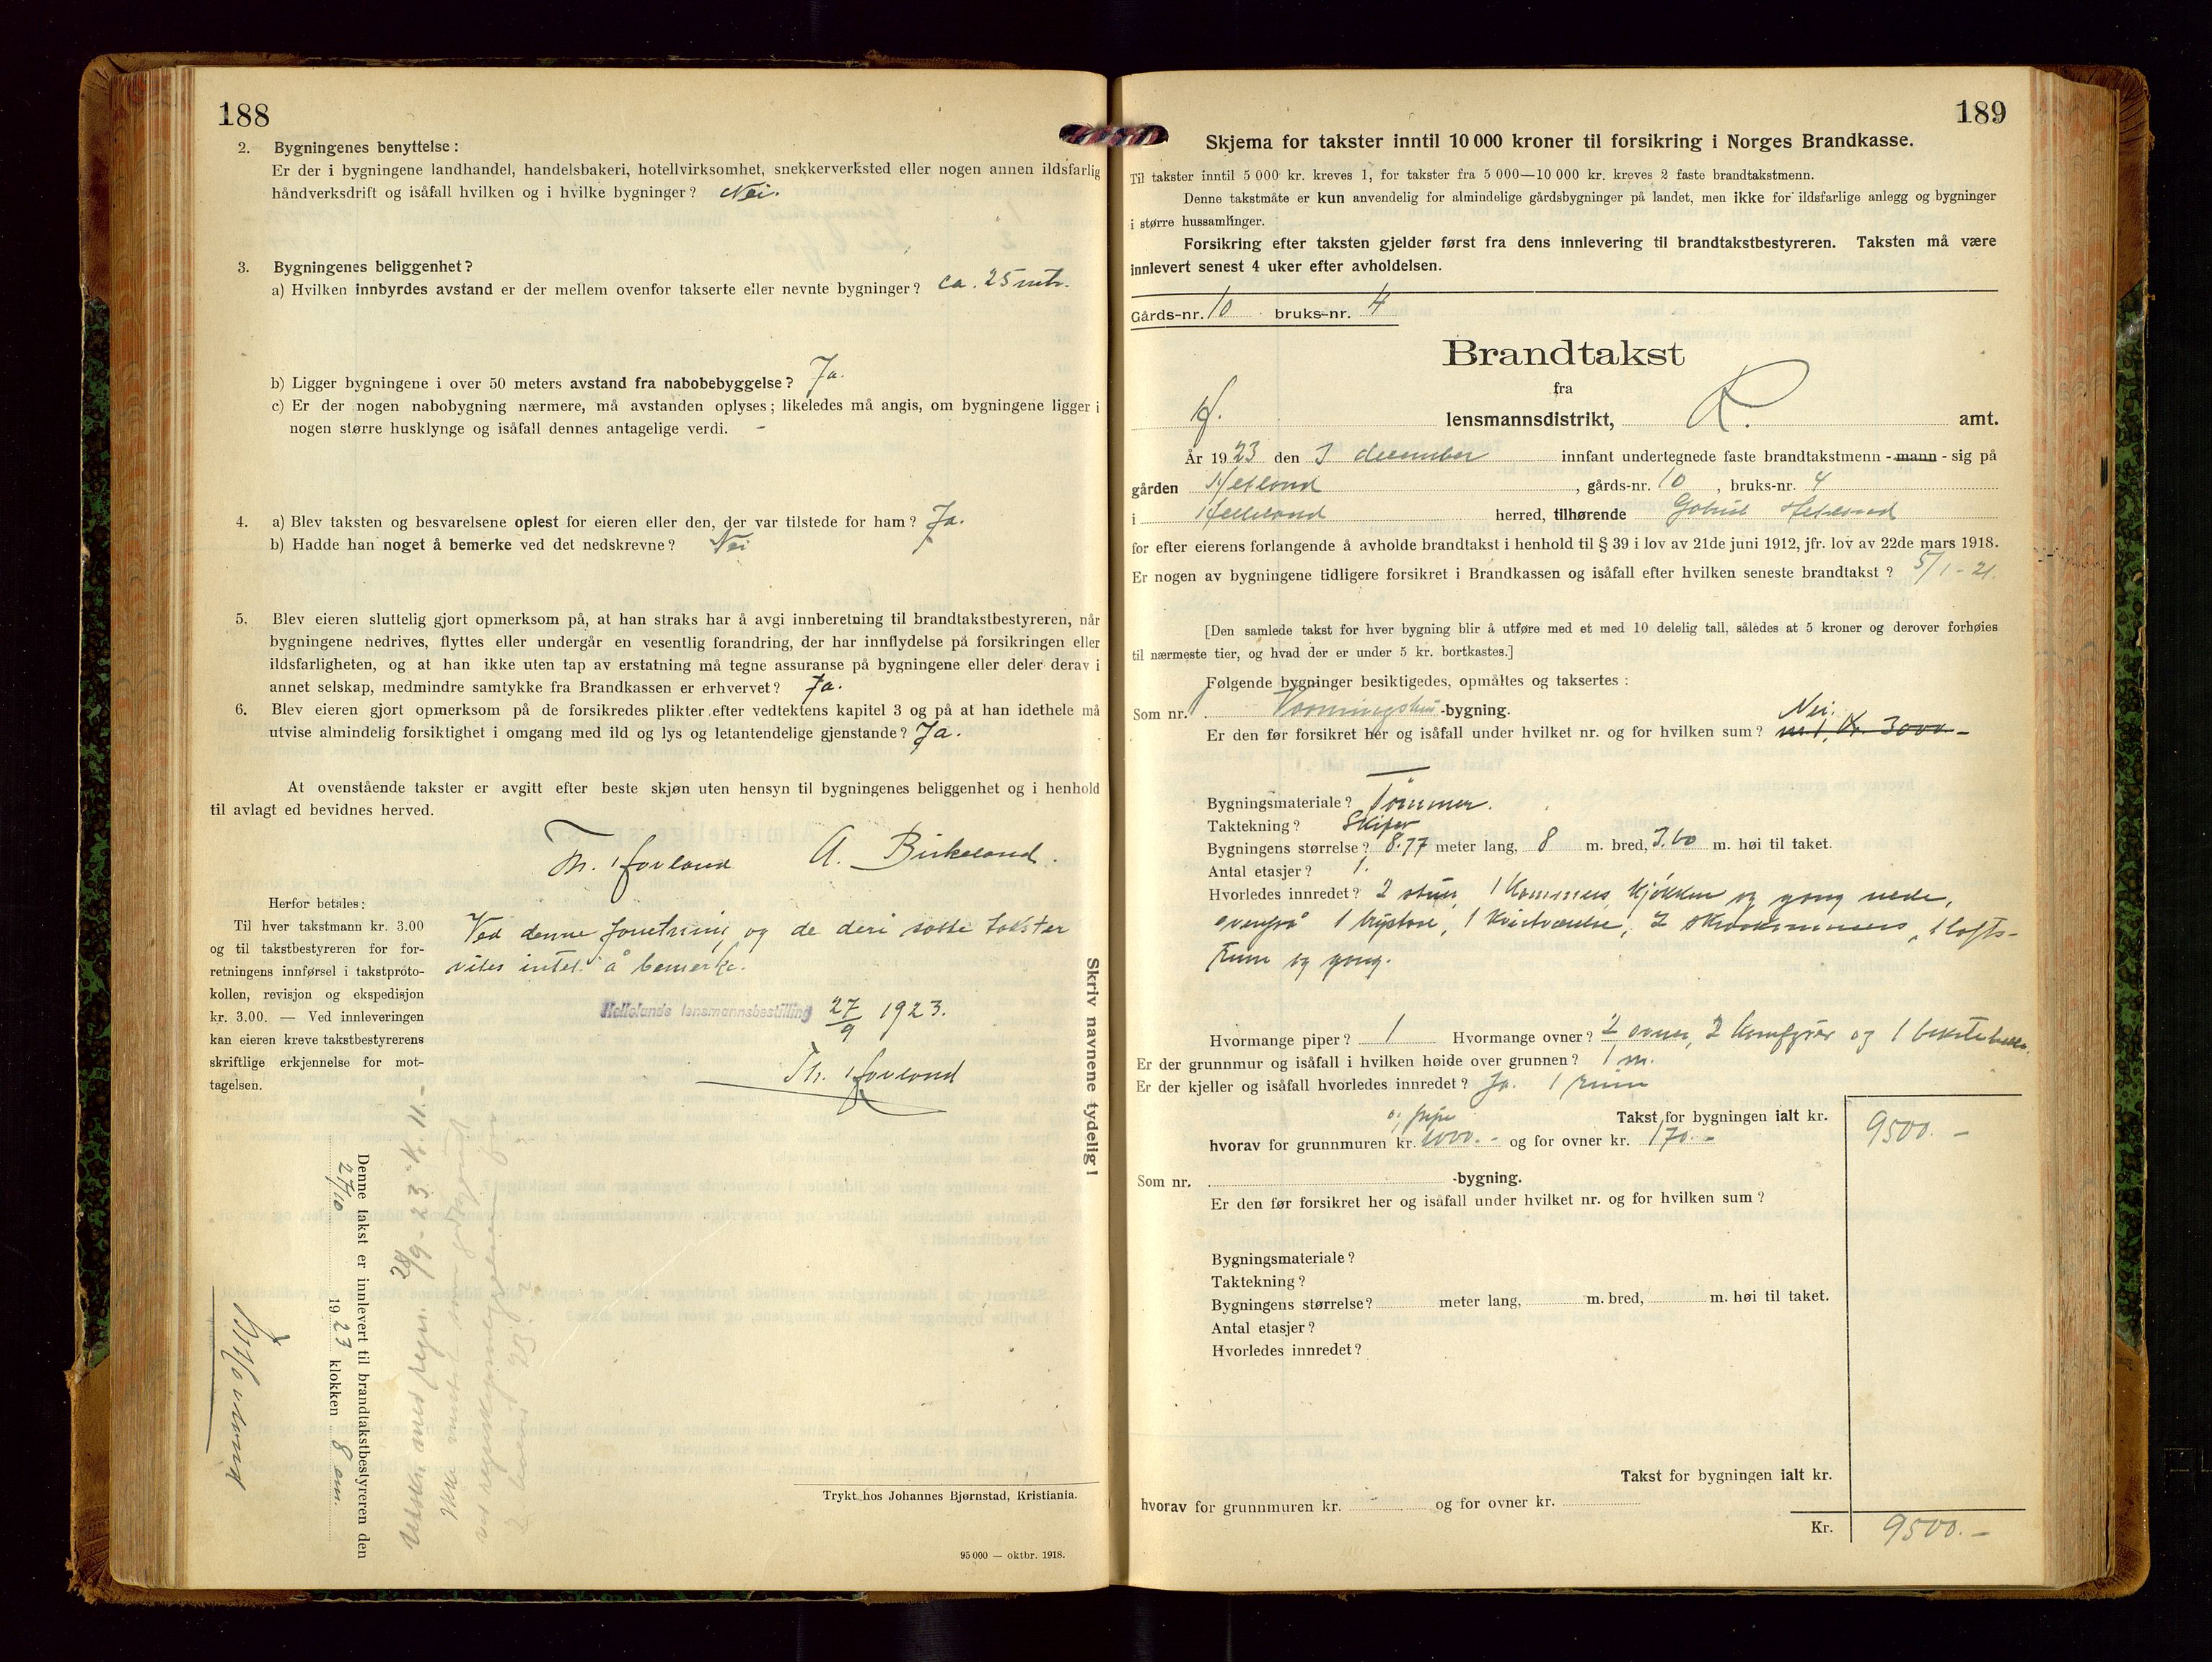 188
2. Bygningenes benyttelse:
Er der i bygningene landhandel, handelsbakeri, hotellvirksomhet, snekkerverksted eller nogen annen ildsfarlig
håndverksdrift og isåfall hvilken og i hvilke bygninger? Nei.
3. Bygningenes beliggenhet?
a) Hvilken innbyrdes avstand er der mellem ovenfor takserte eller nevnte bygninger? ca. 25 mtr.
b) Ligger bygningene i over 50 meters avstand fra nabobebyggelse? Ja.
c) Er der nogen nabobygning nærmere, må avstanden oplyses; likeledes må angis, om bygningene ligger i
nogen større husklynge og isåfall dennes antagelige verdi. -
4. a) Blev taksten og besvarelsene oplest for eieren eller den, der var tilstede for ham? Ja.
b) Hadde han noget å bemerke ved det nedskrevne? Nei
5. Blev eieren sluttelig gjort opmerksom på, at han straks har å avgi innberetning til brandtakstbestyreren, når
bygningene nedrives, flyttes eller undergår en vesentlig forandring, der har innflydelse på forsikringen eller
ildsfarligheten, og at han ikke uten tap av erstatning må tegne assuranse på bygningene eller deler derav i
annet selskap, medmindre samtykke fra Brandkassen er erhvervet? Ja.
6. Blev eieren gjort opmerksom på de forsikredes plikter efter vedtektens kapitel 3 og på at han idethele må
utvise almindelig forsiktighet i omgang med ild og lys og letantendelige gjenstande? Ja.
At ovenstående takster er avgitt efter beste skjøn uten hensyn til bygningenes beliggenhet og i henhold
til avlagt ed bevidnes herved.
Th. Hovland A. Birkeland.
Herfor betales:
Til hver takstmann kr. 3.00
og til takstbestyreren for for-
retningens innførsel i takstproto-
kollen, revisjon og ekspedisjon
kr. 3.00. — Ved innleveringen
kan eieren kreve takstbestyrerens
skriftlige erkjennelse for mot-
tagelsen.
Ved denne forretning og de deri satte takster
vites intet å bemerke.
Hellelands lensmannsbestilling 27/9 1923.
Th. Hovland
Skriv navnene tydelig!
Denne takst er innlevert til brandtakstbestyreren den
27/10 1923 klokken 8 em.
Th. Hovland
Trykt hos Johannes Bjørnstad, Kristiania.
95 000 — oktbr. 1918.
189
Skjema for takster inntil 10 000 kroner til forsikring i Norges Brandkasse.
Til takster inntil 5 000 kr. kreves 1, for takster fra 5 000—10 000 kr. kreves 2 faste brandtakstmenn.
Denne takstmåte er kun anvendelig for almindelige gårdsbygninger på landet, men ikke for ildsfarlige anlegg og bygninger
i større hussamlinger.
Forsikring efter taksten gjelder først fra dens innlevering til brandtakstbestyreren. Taksten må være
innlevert senest 4 uker efter avholdelsen.
Gårds-nr. 10 bruks-nr. 4
Brandtakst
fra
H. lensmannsdistrikt, R. amt.
År 1923 den 3 december innfant undertegnede faste brandtakstmenn - mann - sig på
gården Hetland, gårds-nr. 10, bruks-nr. 4
i Helleland herred, tilhørende Gabriel Hetland
for efter eierens forlangende å avholde brandtakst i henhold til § 39 i lov av 21de juni 1912, jfr. lov av 22de mars 1918.
Er nogen av bygningene tidligere forsikret i Brandkassen og isåfall efter hvilken seneste brandtakst? 5/1 - 21.
[Den samlede takst for hver bygning blir å utføre med et med 10 delelig tall, således at 5 kroner og derover forhøies
til nærmeste tier, og hvad der er under 5 kr. bortkastes.]
Følgende bygninger besiktigedes, opmåltes og taksertes:
Som nr. 1 Vaaningshus-bygning.
Er den før forsikret her og isåfall under hvilket nr. og for hvilken sum? Nei. nr 1, Kr. 3000 -
Bygningsmateriale? Tømmer.
Taktekning? Skifer
Bygningens størrelse? 8.77 meter lang, 8 m. bred, 3.60 m. høi til taket.
Antal etasjer? 1.
Hvorledes innredet? 2 stuer, 1 kammers, kjøkken og gang nede,
ovenpå 1 1 kvistværelse, 2 skraakammers, 1 lofts-
rum og gang.
Hvormange piper? 1 Hvormange ovner? 2 ovner, 2 komfyrer og 1
Er der grunnmur og isåfall i hvilken høide over grunnen? 1 m.
Er der kjeller og isåfall hvorledes innredet? Ja. 1 rum
Takst for bygningen ialt kr. 9500. -
hvorav for grunnmuren og pipe kr. 1000. - og for ovner kr. 170. -
Som nr. -bygning.
Er den før forsikret her og isåfall under hvilket nr. og for hvilken sum?
Bygningsmateriale?
Taktekning?
Bygningens størrelse? meter lang, m. bred, m. høi til taket.
Antal etasjer?
Hvorledes innredet?
Takst for bygningen ialt kr.
hvorav for grunnmuren kr. og for ovner kr.
Kr. 9500. -